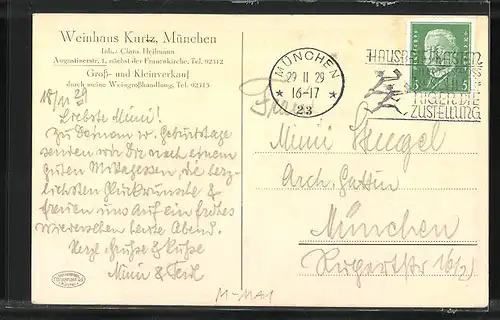 Weinhaus Kurtz, München
Inh.: Clara Heilmann
Augustinerstr. 1, nächst der Frauenkirche, Tel. 92312
Groß- und Kleinverkauf
durch meine Weingroßhandlung, Tel. 92313
MÜNCHEN
29 II 29
16-17
23
ZUSTELLUNG
5 5
Liebste Mimi!
Zu Deinem w. Geburtstage
senden wir Dir nach einem
guten Mittagessen, die herz-
lichsten Glückwünsche &
freuen uns auf ein frohes
Wiedersehen heute Abend.
Herzl. Grüße & Küsse
Frau
Mimi
Arch. Gattin
München